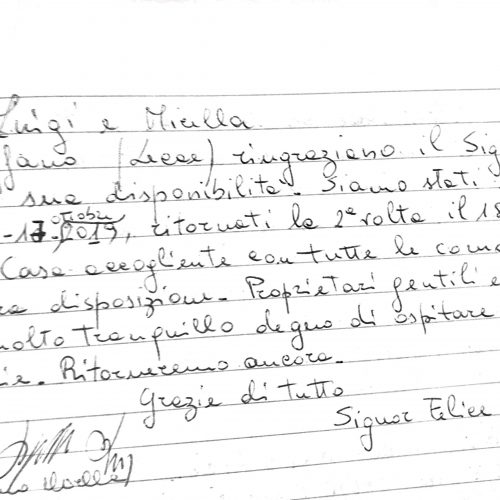 Luigi e Mirella
(Lecce) ringraziano il Sig
sua disponibilità. Siamo stati
ottobre
-17. 2019, ritornati la 2ª volta il 18
Casa accogliente con tutte le como
disposizione. Proprietari gentili e
molto tranquillo degno di ospitare
Ritorneremo ancora.
Grazie di tutto
Signor Felice